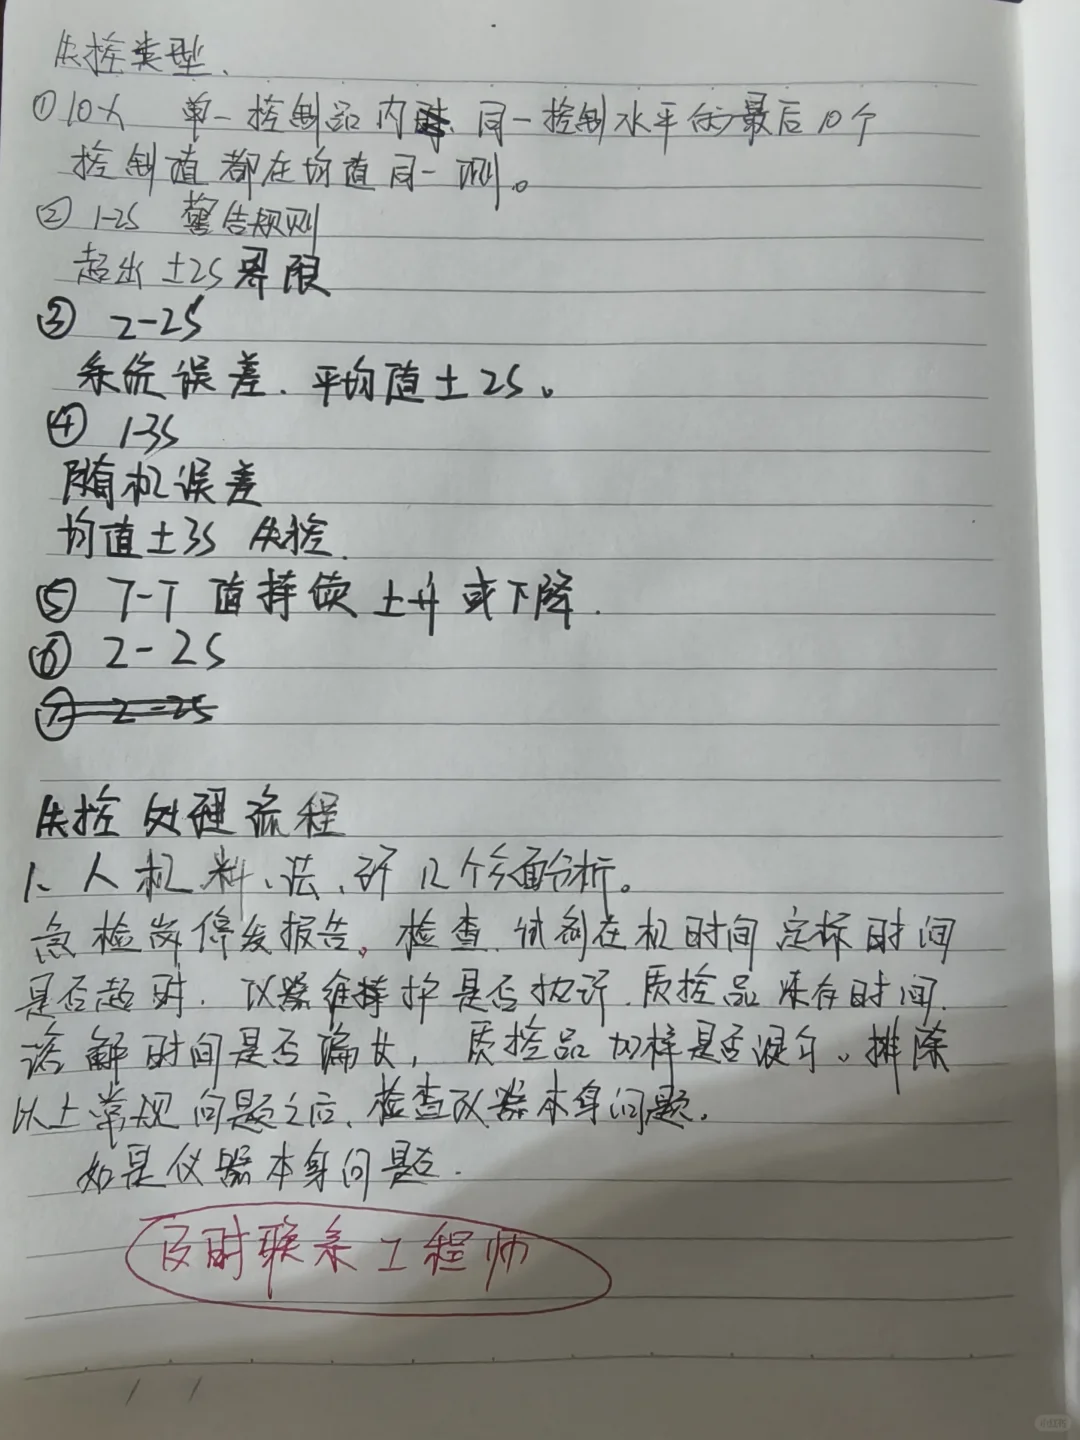 失控类型.
①10x 单一控制品内 同一控制水平的最后10个
控制值都在均值同一侧。
② 1-2S 警告规则
超出±2S界限
③ 2-2S
系统误差.平均值±2S。
④ 1-3S
随机误差
均值±3S 失控.
⑤ 7-T 值持续上升或下降.
⑥ 2-2S
⑦ 2-2S
失控处理流程
1、人机料、法、环几个方面分析。
急检岗停发报告。检查.试剂在机时间定标时间
是否超时.仪器维护是否执行.质控品保存时间.
溶解时间是否偏长，质控品加样是否混匀。排除
以上常规问题之后、检查仪器本身问题.
如是仪器本身问题.
及时联系工程师